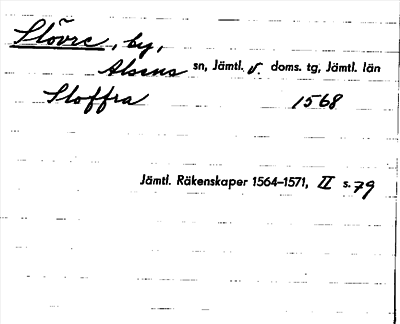 Slövre, by,
Alsens sn, Jämtl. v. doms. tg, Jämtl. län
Sloffra 1568
Jämtl. Räkenskaper 1564–1571, II s. 79